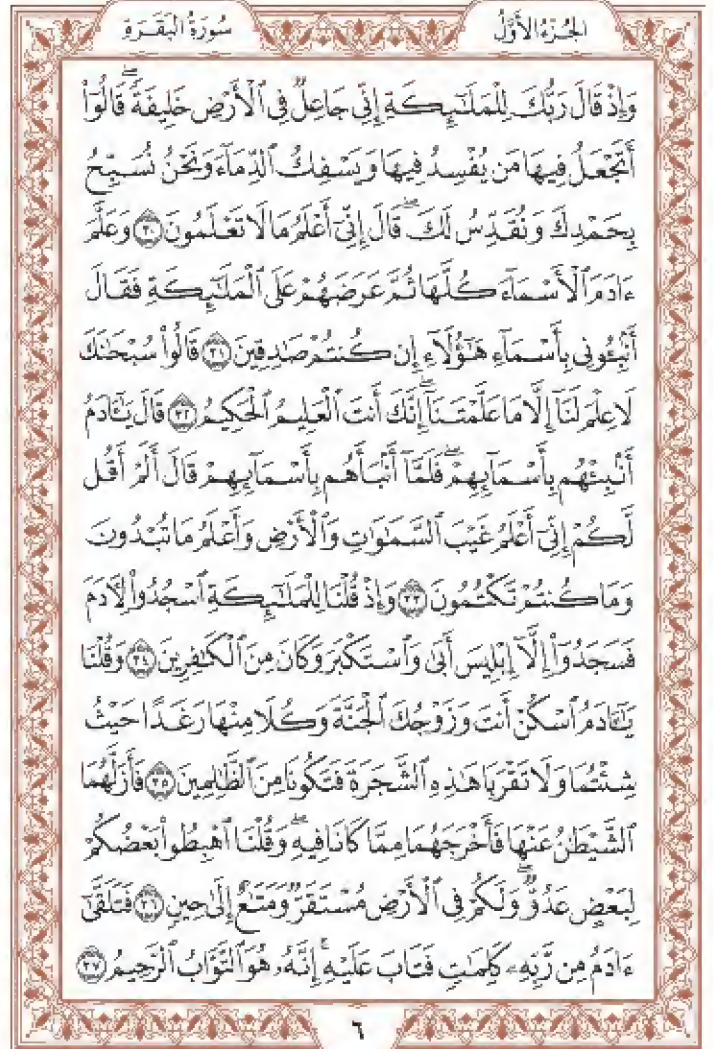 سُورَةُ البَقَرَةِ
الجُزْءُ الأَوَّلُ
وَإِذْ قَالَ رَبُّكَ لِلْمَلَٰٓئِكَةِ إِنِّى جَاعِلٌ فِى ٱلْأَرْضِ خَلِيفَةً ۖ قَالُوٓا۟
أَتَجْعَلُ فِيهَا مَن يُفْسِدُ فِيهَا وَيَسْفِكُ ٱلدِّمَآءَ وَنَحْنُ نُسَبِّحُ
بِحَمْدِكَ وَنُقَدِّسُ لَكَ ۖ قَالَ إِنِّىٓ أَعْلَمُ مَا لَا تَعْلَمُونَ ٣٠ وَعَلَّمَ
ءَادَمَ ٱلْأَسْمَآءَ كُلَّهَا ثُمَّ عَرَضَهُمْ عَلَى ٱلْمَلَٰٓئِكَةِ فَقَالَ
أَنۢبِـُٔونِى بِأَسْمَآءِ هَٰٓؤُلَآءِ إِن كُنتُمْ صَٰدِقِينَ ٣١ قَالُوا۟ سُبْحَٰنَكَ
لَا عِلْمَ لَنَآ إِلَّا مَا عَلَّمْتَنَآ ۖ إِنَّكَ أَنتَ ٱلْعَلِيمُ ٱلْحَكِيمُ ٣٢ قَالَ يَٰٓـَٔادَمُ
أَنۢبِئْهُم بِأَسْمَآئِهِمْ ۖ فَلَمَّآ أَنۢبَأَهُم بِأَسْمَآئِهِمْ قَالَ أَلَمْ أَقُل
لَّكُمْ إِنِّىٓ أَعْلَمُ غَيْبَ ٱلسَّمَٰوَٰتِ وَٱلْأَرْضِ وَأَعْلَمُ مَا تُبْدُونَ
وَمَا كُنتُمْ تَكْتُمُونَ ٣٣ وَإِذْ قُلْنَا لِلْمَلَٰٓئِكَةِ ٱسْجُدُوا۟ لِءَادَمَ
فَسَجَدُوٓا۟ إِلَّآ إِبْلِيسَ أَبَىٰ وَٱسْتَكْبَرَ وَكَانَ مِنَ ٱلْكَٰفِرِينَ ٣٤ وَقُلْنَا
يَٰٓـَٔادَمُ ٱسْكُنْ أَنتَ وَزَوْجُكَ ٱلْجَنَّةَ وَكُلَا مِنْهَا رَغَدًا حَيْثُ
شِئْتُمَا وَلَا تَقْرَبَا هَٰذِهِ ٱلشَّجَرَةَ فَتَكُونَا مِنَ ٱلظَّٰلِمِينَ ٣٥ فَأَزَلَّهُمَا
ٱلشَّيْطَٰنُ عَنْهَا فَأَخْرَجَهُمَا مِمَّا كَانَا فِيهِ ۖ وَقُلْنَا ٱهْبِطُوا۟ بَعْضُكُمْ
لِبَعْضٍ عَدُوٌّ ۖ وَلَكُمْ فِى ٱلْأَرْضِ مُسْتَقَرٌّ وَمَتَٰعٌ إِلَىٰ حِينٍ ٣٦ فَتَلَقَّىٰٓ
ءَادَمُ مِن رَّبِّهِۦ كَلِمَٰتٍ فَتَابَ عَلَيْهِ ۚ إِنَّهُۥ هُوَ ٱلتَّوَّابُ ٱلرَّحِيمُ ٣٧
٦